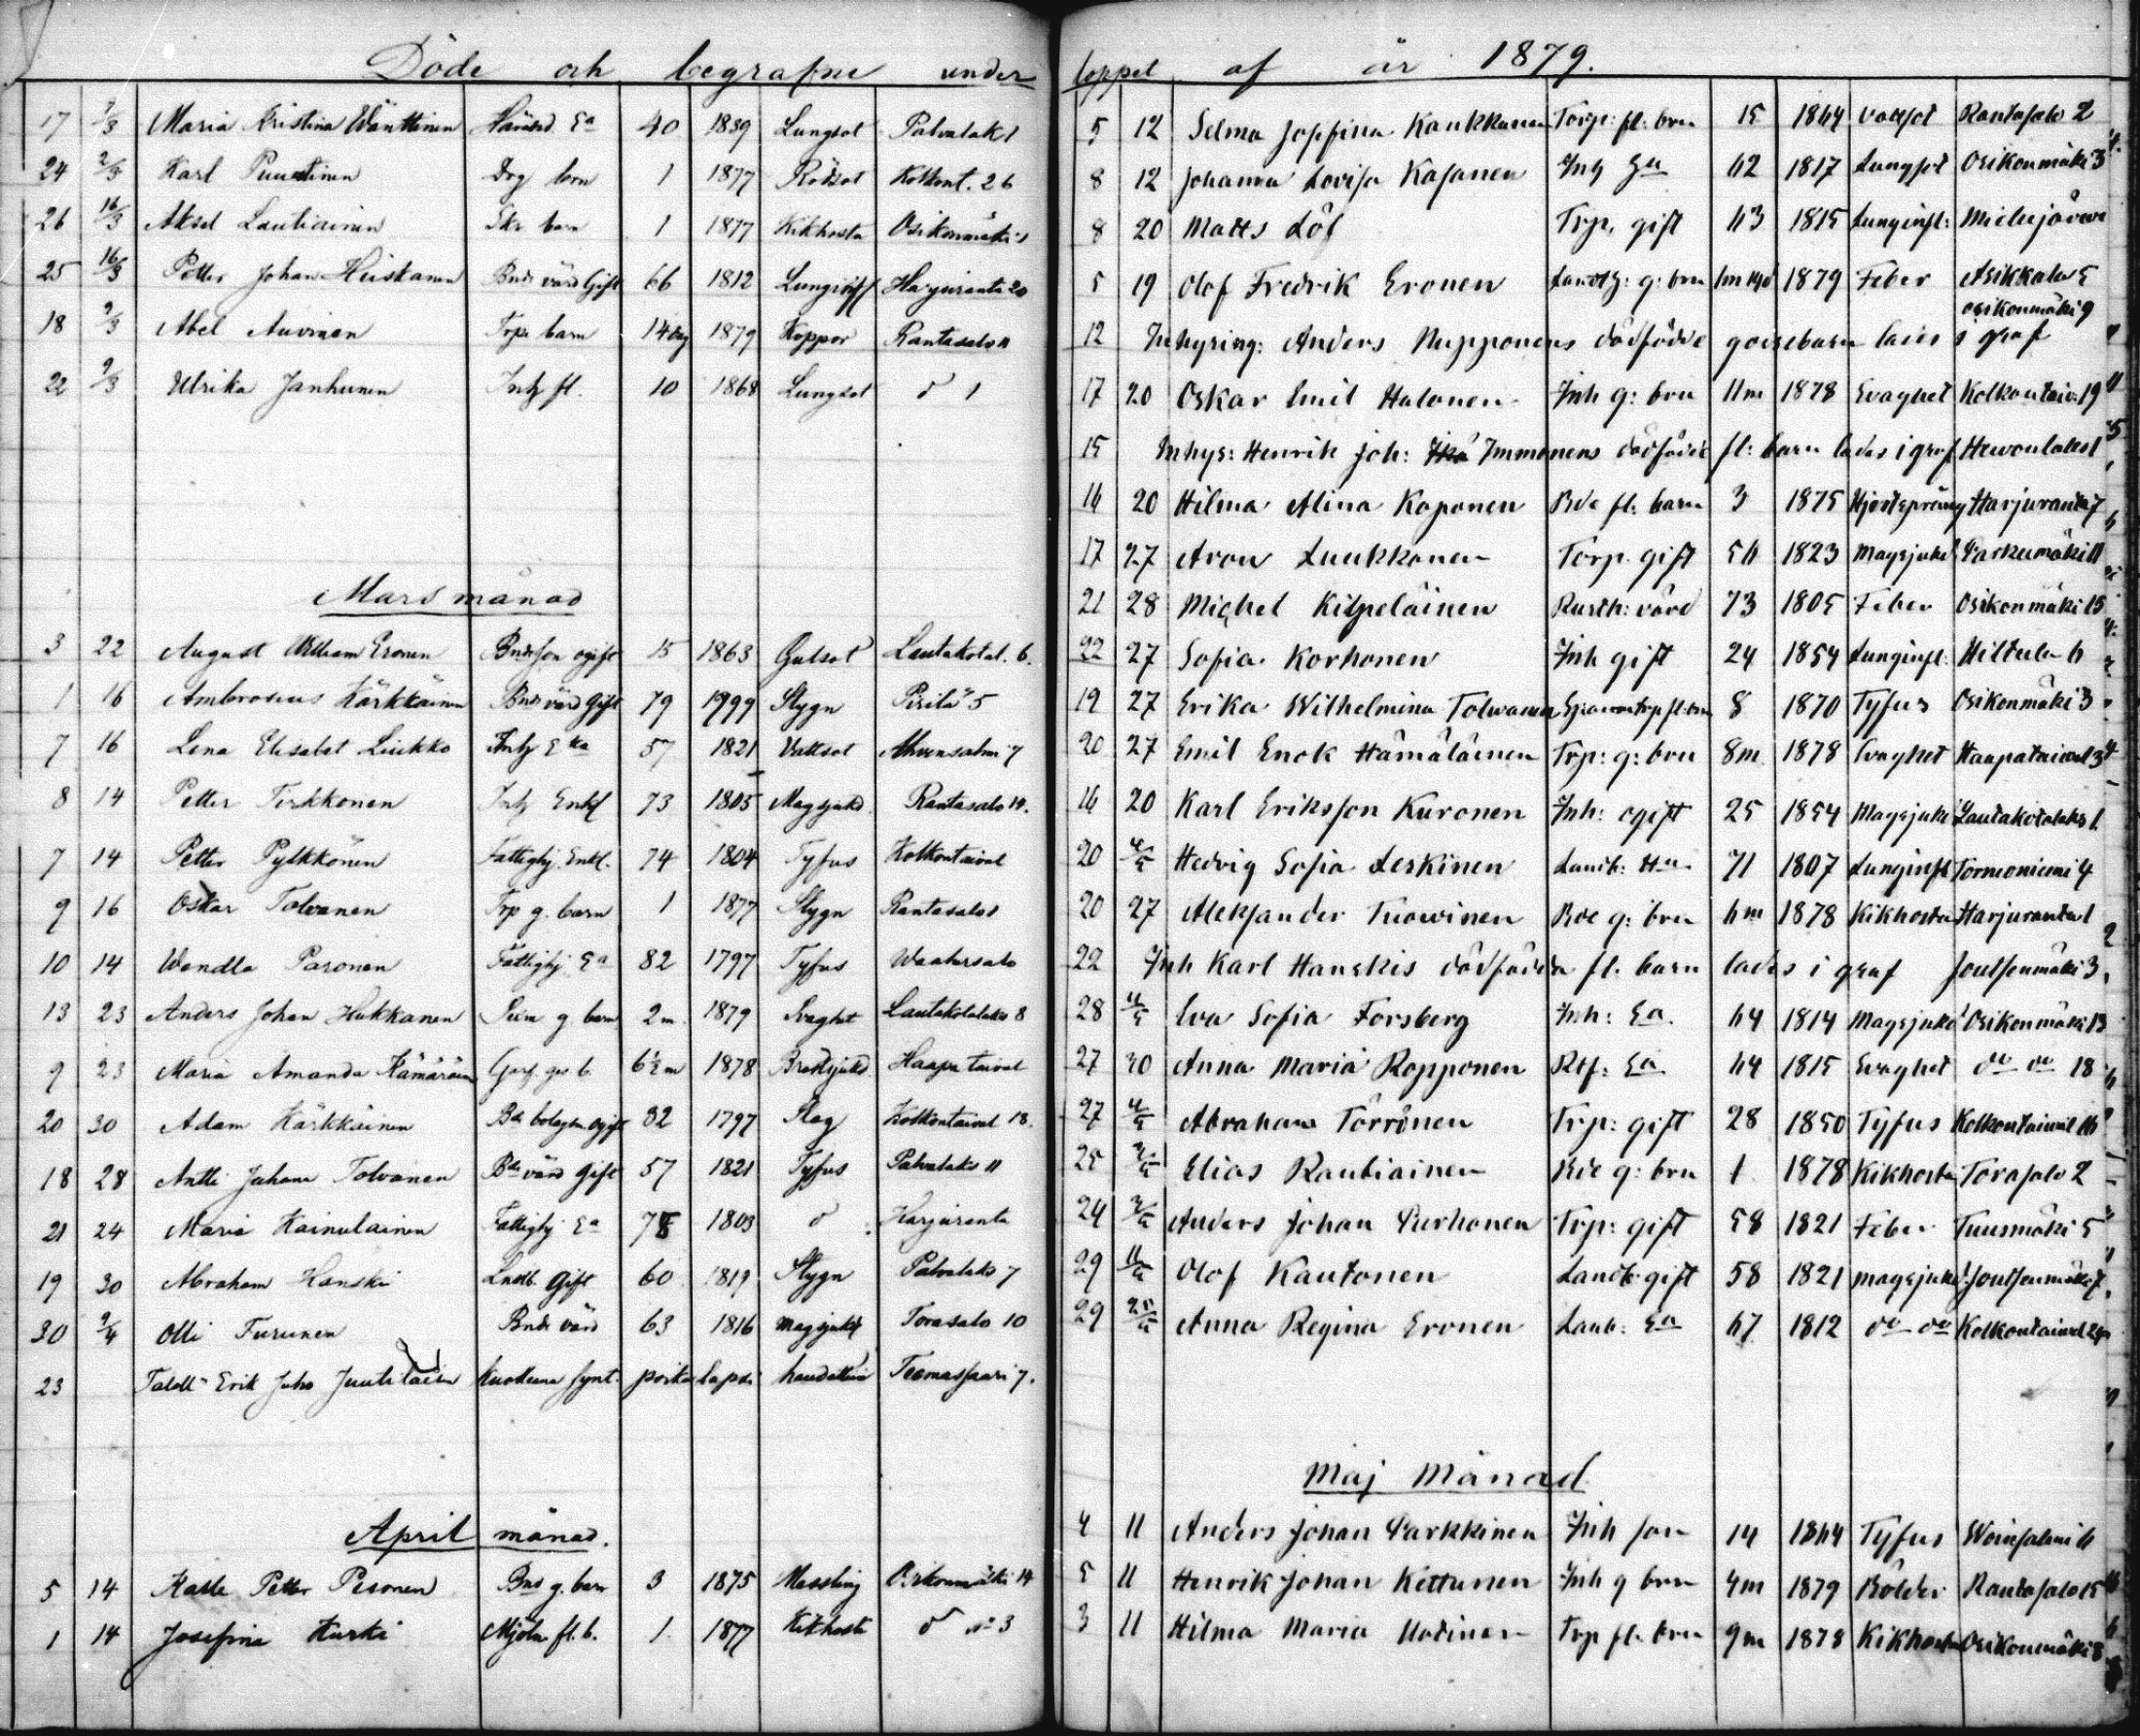 Döde och begrafne under
17 2/3 Maria Kristina Wänttinen Ea 40 1839 Lungsot Palvalaks 1
24 2/3 Karl Puustinen Drg barn 1 1877 Rödsot Kolkont. 26
26 16/3 Aksel Lautiainen barn 1 1877 Kikhosta Osikonmäki 1
25 16/3 Petter Johan Heiskanen Bnde värd Gift 66 1812 Harjuranta 20
18 9/3 Abel Auvinen Trp. barn 14 dag 1879 Koppor Rantasalo 11
22 9/3 Ulrika Janhunen Inh fl. 10 1868 Lungsot d 1
Mars månad
3 22 August William Eronen Bndeson ogift 15 1863 Gulsot Lautakotal. 6.
1 16 Ambrosius Kärkkäinen Bnde värd Gift 79 1799 Stygn Pirilä 5
7 16 Lena Elisabet Liukko Inh Eka 57 1821 Vattsot Ahvensalmi 7
8 14 Petter Tirkkonen Inh Enkl 73 1805 Magsjukd. Rantasalo 14.
7 14 Petter Pylkkönen Fattighj. Enkl. 74 1804 Tyfus Kolkontaival
9 16 Oskar Tolvanen Trp g. barn 1 1877 Stygn Rantasalo 1
10 14 Wendla Paronen Fattighj Ea 82 1797 Tyfus Waahersalo
13 23 Anders Johan Hukkanen g barn 2 m 1879 Svaghet Lautakotalaks 8
9 23 Maria Amanda Hämäräinen b. 6½ m 1878 Bröstsjukd Haapataival
20 30 Adam Kärkkäinen Bde bolagsm. ogift 82 1797 Slag Kolkontaival 18.
18 28 Antti Juhana Tolvanen Bde värd Gift 57 1821 Tyfus Palvalaks 11
21 24 Maria Kainulainen Fattighj Ea 75 1803 d : Harjuranta
19 30 Abraham Hanski Lndb. Gift 60 1819 Stygn Palvalaks 7
30 9/4 Olli Turunen Bnde värd 63 1816 magsjukd Torasalo 10
23 Taloll. Erik Juho Juutilaisen kuolleena synt. poika lapsi haudattiin Teemassaari 7.
April månad.
5 14 Kalle Petter Pesonen Bnd g. barn 3 1875 Messling Osikonmäki 14
1 14 Josefina Kurki Mjöln. fl. b. 1. 1877 Kikhosta d No 3
loppet af år 1879.
5 12 Selma Josfina Kaukkanen Torp: fl: brn 15 1864 vattsot Rantasalo 2
8 12 Johanna Lovisa Kasanen Inh Ea 62 1817 Lungsot Osikonmäki 3
8 20 Matts Löf Trp. gift 63 1815 Lunginfl:
5 19 Olof Fredrik Eronen g: brn 1879 Feber Asikkala 5
12 Inhysing: Anders Nupponens dödfödde gossebarn lades i graf Osikonmäki 9
17 20 Oskar Emil Halonen Inh g: brn 11m 1878 Svaghet Kolkontaiv. 19
15 Inhys: Henrik Joh: Immonens dödfödde fl: barn lades i graf
16 20 Hilma Alina Koponen Bde fl: barn 3 1875 Harjuranta 7
17 27 Aron Luukkonen Torp. gift 56 1823 Magsjukd Parkumäki 11
21 28 Michel Kilpeläinen Rusth: värd 73 1805 Feber Osikonmäki 15
22 27 Sofia Korhonen Inh gift 24 1854 Lunginfl: Hiltula 6
19 27 Erika Wilhelmina Tolwanen 8 1870 Tyfus Osikonmäki 3
20 27 Emil Enok Hämäläinen Trp: g: brn 8m 1878 Svaghet Haapataival 34
16 20 Karl Eriksson Kuronen Inh: ogift 25 1854 Magsjukd Lautakotalaks 1.
20 4/5 Hedvig Sofia Leskinen Landb: 71 1807 Lunginfl: Tormoniemi 4
20 27 Aleksander Tuowinen Bde g: brn 6m 1878 Kikhosta Harjuranta 1
22 Inh Karl Hanskis dödfödda fl. barn lades i graf Joutsenmäki 3
28 11/5 Eva Sofia Forsberg Inh: Ea. 64 1814 Magsjukd Osikonmäki 13
27 30 Anna Maria Ropponen Rtf: Ea 64 1815 Svaghet do do 18
27 4/5 Abraham Törrönen Trp: gift 28 1850 Tyfus Kolkontaival 16
25 Elias Rautiainen Bde g: brn 1 1878 Kikhosta Torasalo 2
24 Anders Johan Purhonen Trp: gift 58 1821 Feber Tuusmäki 5
29 11/5 Olof Kautonen Landb: gift 58 1821 magsjukd: Joutsenmäki 7.
29 Anna Regina Eronen Landb: Ea 67 1812 do do Kolkontaival 24
Maj Månad
4 11 Anders Johan Parkkinen Inh son 14 1864 Tyfus Woinsalmi 6
5 11 Henrik Johan Kettunen Inh g brn 4m 1879 Bölder Rantasalo 15
3 11 Hilma Maria Trp fl. brn 9m 1878 Kikhosta Osikonmäki 8